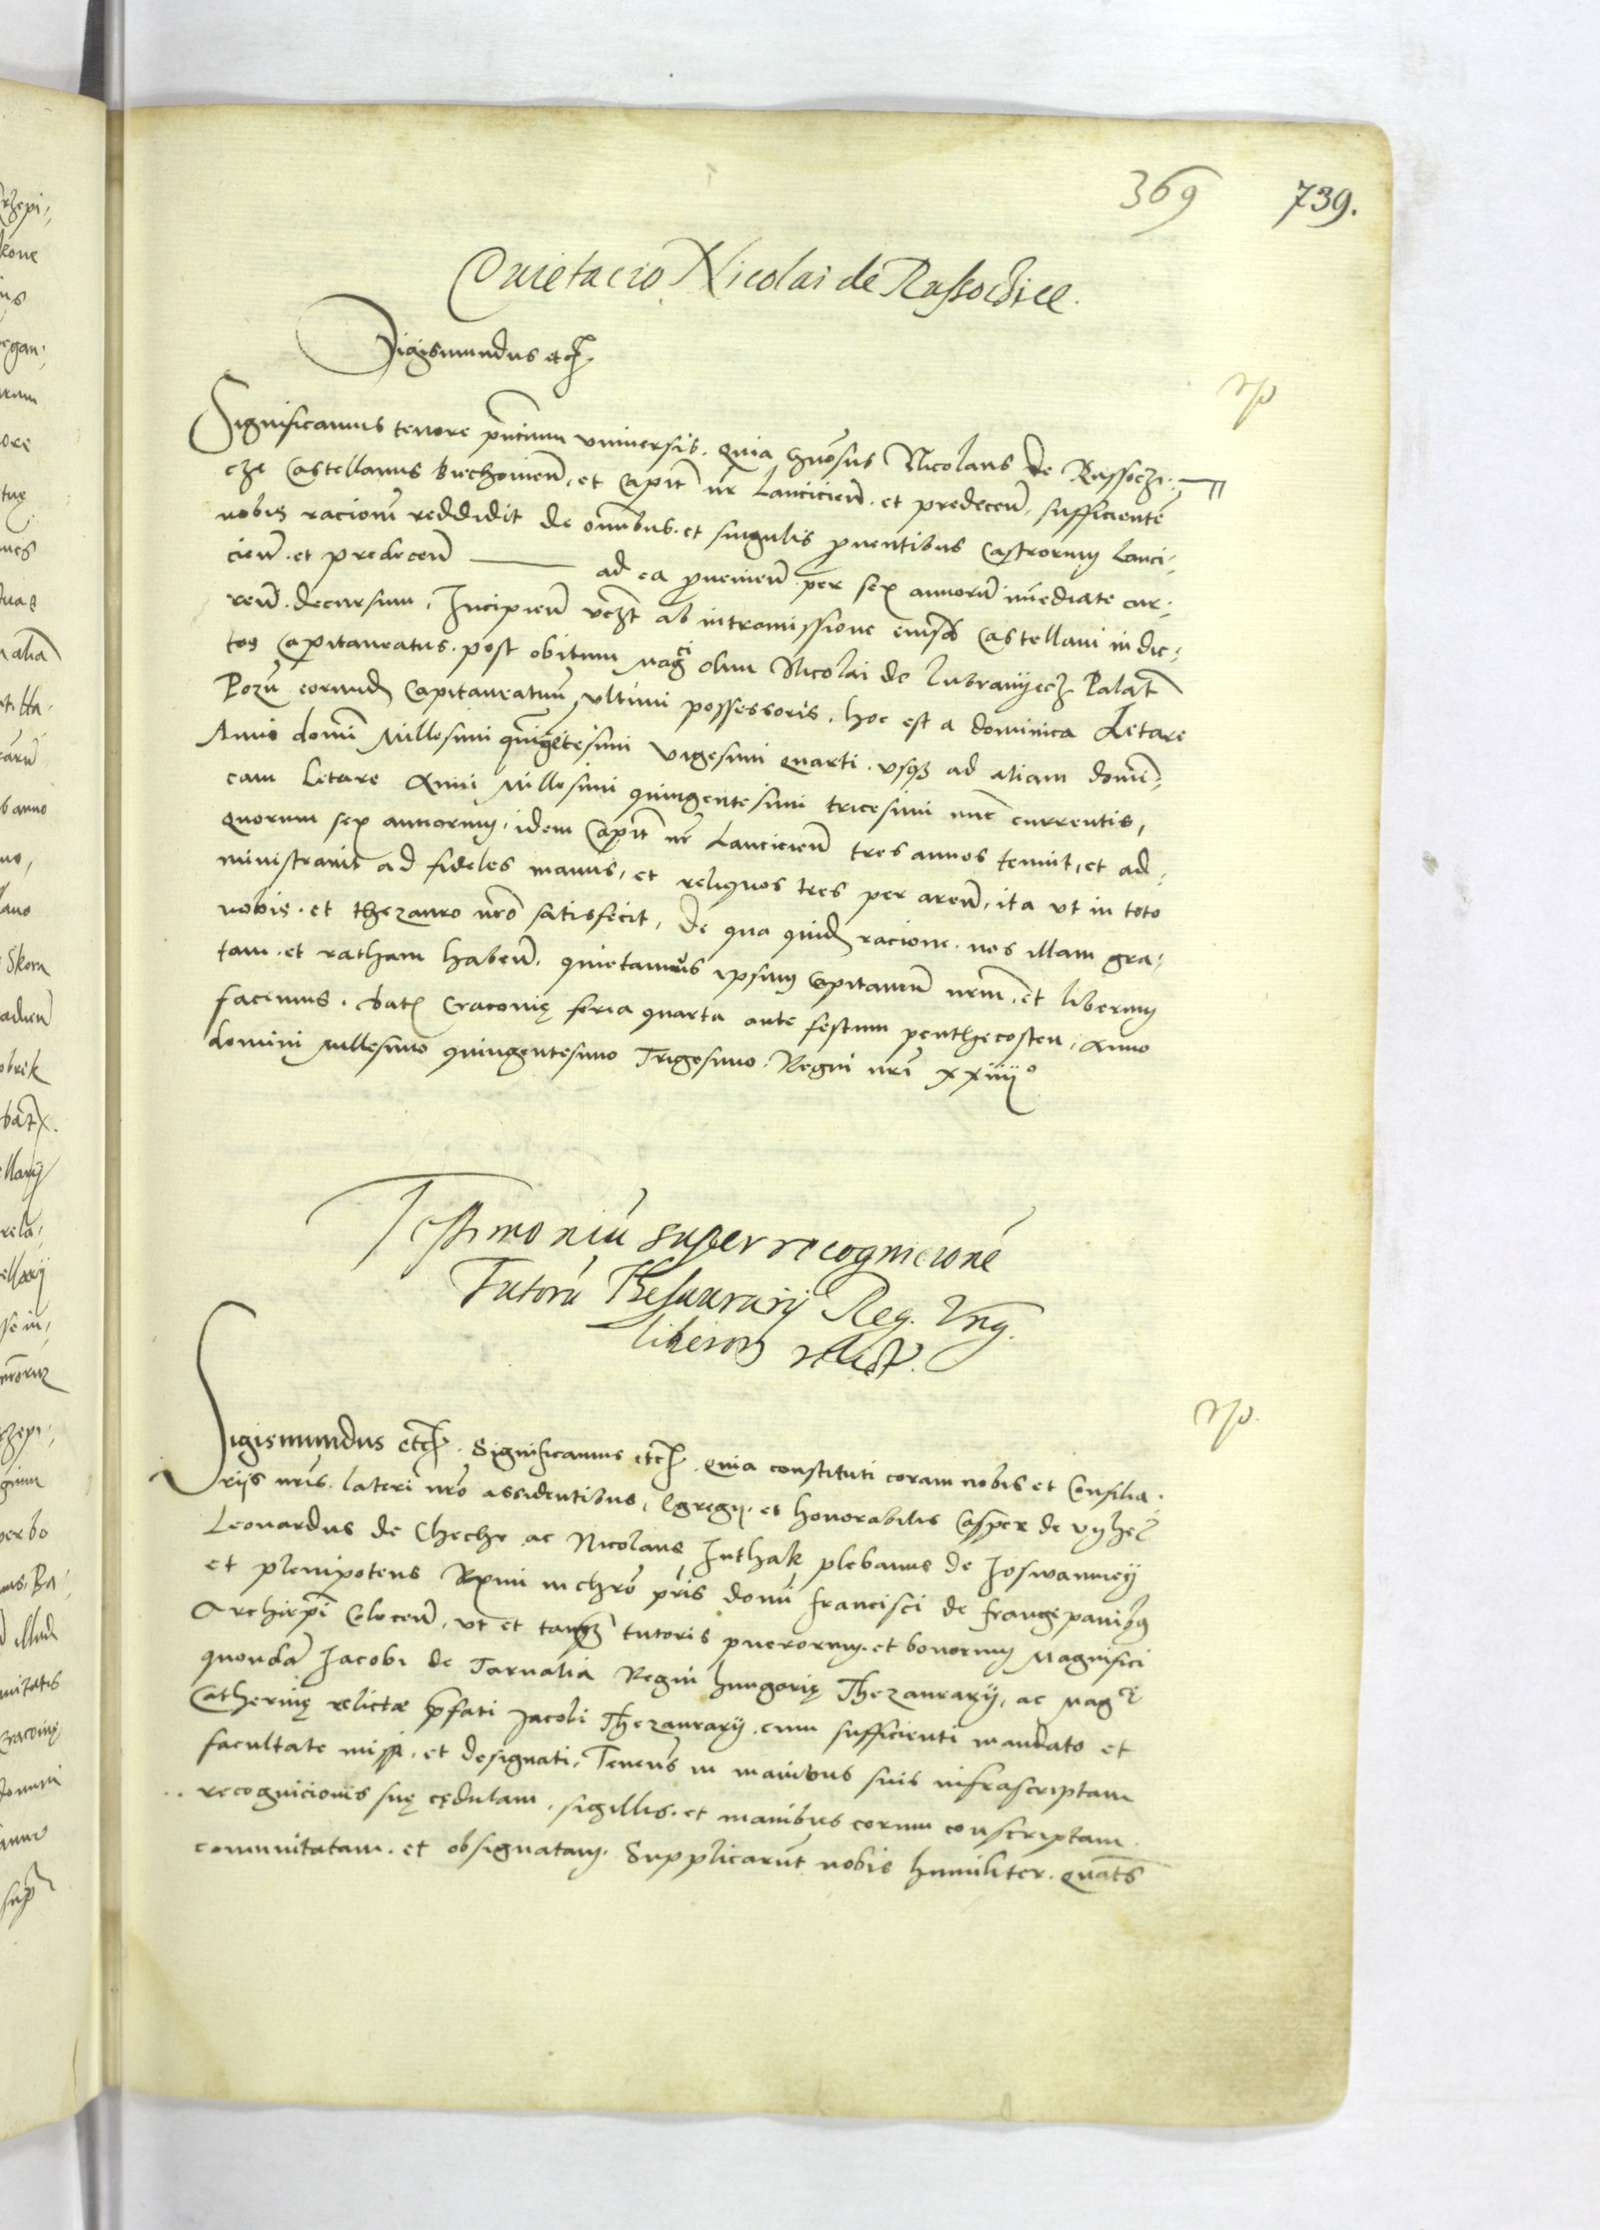 369 739.
Quietacio Nicolai de Russoczice.
Sigismundus etc.
Significamus tenore pñtium vniversis. Quia Gñosus Nicolaus de Russoczi-
cze Castellanus biechoviens̃, et Capit̃ nr̃ Lanciciens̃. et predecens̃, sufficientẽ
nobis racionẽ reddidit de om̃ibus. et singulis ꝓventibus Castrorum Lanci-
ciens̃. et predecens̃ ——— ad ea ꝓveniens̃. per sex annorũ im̃ediate cur-
rens̃. decursum. Incipiens̃ vcz̃t ab intromissione eiusd̃ Castellani in dic-
tos Capitaneatus. post obitum magci olim Nicolai de Lubranyecz Palat̃
Pozñ eorund̃ Capitaneatuũ vltimi possessoris. hoc est a dominica Letare
Anni domĩ Millesimi quingẽtesimi vigesimi quarti. vsqȝ ad aliam domĩ-
cam Letare Anni Millesimi quingentesimi tricesimi nũc currentis,
Quorum sex annorum. idem Capit̃ nr̃ Lanciciens̃ tres annos tenuit, et ad-
ministravit ad fideles manus, et reliquos tres per arens̃, ita vt in toto
nobis. et thezauro nr̃o satisfecit, De qua quid̃ racione. nos illam gra-
tam. et ratham habens̃. quietamus ipsum Capitaneũ nrm̃. et liberum
facimus. Dat̃ Cracovię feria quarta ante festum penthecosten, Anno
domini millesimo quingentesimo Trigesimo. Regni nr̃i xxiiij°
Testimoniũ super recognicionẽ
Tutorũ Thesaurarij Reg. Vng.
liberorũ relict̃.
Sigismundus etc̃. Significamus etc̃. Quia constituti coram nobis et Consilia-
rijs nr̃is. lateri nr̃o assidentibus, Egregij. et honorabilis Casper de vyhel̃
Leonardus de Cheche ac Nicolaus Juthak plebanus de Joswanney
et plenipotens Rꝫmi in chr̃o pr̃is domĩ Francisci de Frangepanibꝫ
Archiepĩ Coloceñ, vt et tanqȝ tutoris puerorum. et bonorum Magnifici
quondã Jacobi de Tarnalia Regni hungarię Thezaurarij, ac Magcę
Catherinę relictæ p̃fati Jacobi Thezaurarij. cum sufficienti mandato et
facultate missi. et designati, Tenens̃ in manibus suis infrascriptam
recognicionis suę cędulam, sigillis. et manibus eorum conscriptam.
communitatam. et obsignatam. Supplicarũt nobis humiliter. Quatẽs